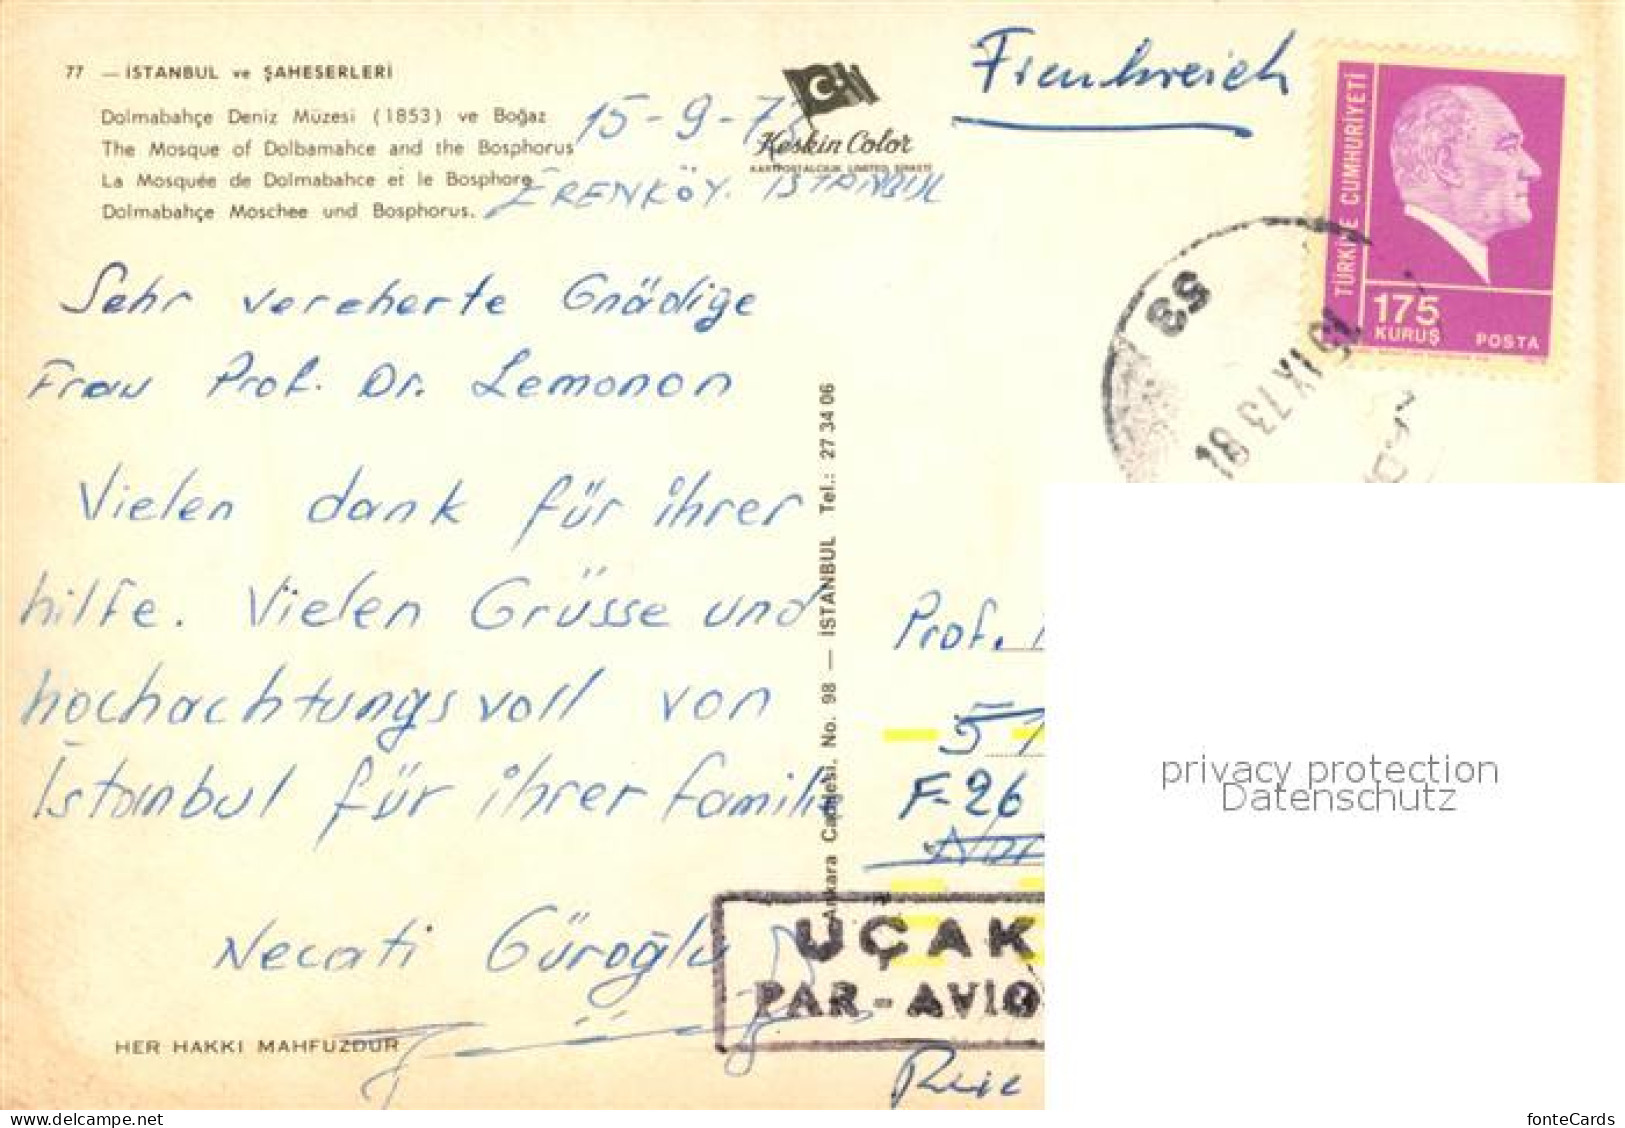 77 — İSTANBUL ve ŞAHESERLERİ
Dolmabahçe Deniz Müzesi (1853) ve Boğaz
The Mosque of Dolbamahce and the Bosphorus
La Mosquée de Dolmabahce et le Bosphore
Dolmabahçe Moschee und Bosphorus.
Keskin Color
KARTPOSTALCILIK LIMITED ŞİRKETİ
15-9-73
ERENKÖY. ISTANBUL
Frankreich
TÜRKİYE CUMHURİYETİ
175
KURUŞ POSTA
53
19 IX 73 18
Sehr vereherte Gnädige
Frau Prof. Dr. Lemonon
Vielen dank für ihrer
hilfe. Vielen Grüsse und
hochachtungsvoll von
İstanbul für ihrer familie
Necati Güroğlu
HER HAKKI MAHFUZDUR
Ankara Caddesi. No. 98 — İSTANBUL Tel.: 27 34 06
Prof.
51
F-26
UÇAK
PAR-AVIO
Rue
privacy protection
Datenschutz
fonteCards